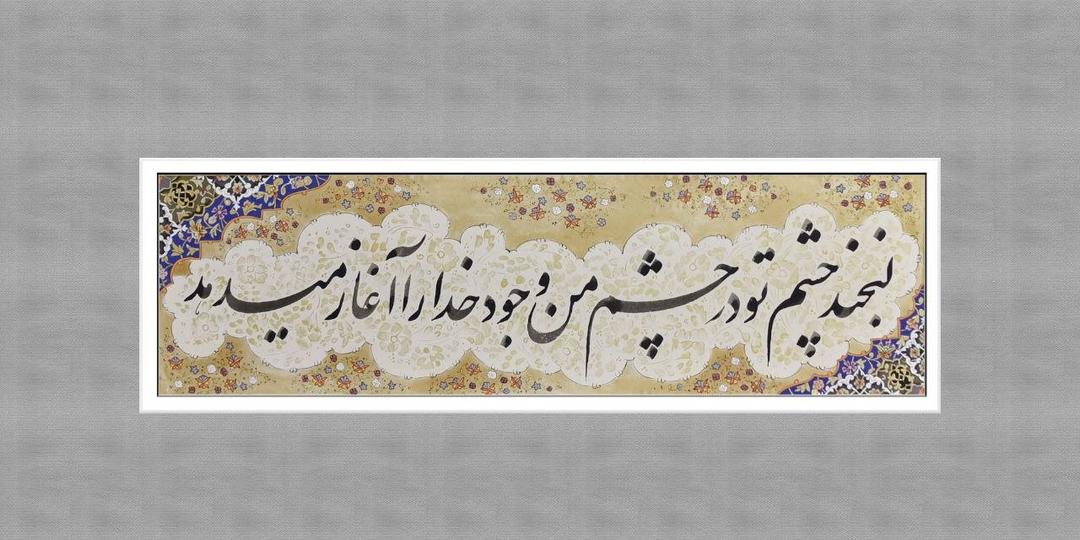 لبخند چشم تو در چشم من وجود خدا را آغاز میدهد